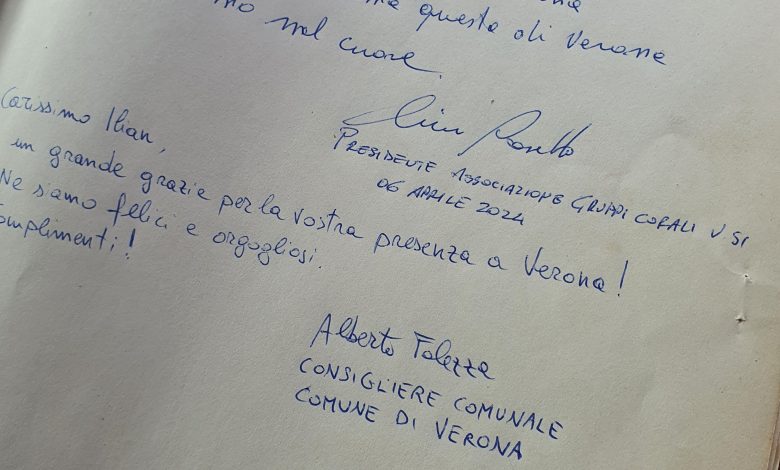 questa di Verona
nel cuore.
PRESIDENTE ASSOCIAZIONE GRUPPI CORALI V SI
06 APRILE 2024
Carissimo Ilian,
un grande grazie per la vostra presenza a Verona!
Ne siamo felici e orgogliosi.
Complimenti!
Alberto Falezza
CONSIGLIERE COMUNALE
COMUNE DI VERONA